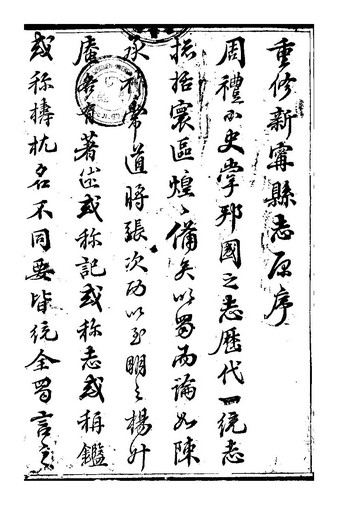 重修新寧縣志原序
周禮小史掌邦國之志歷代一統志
括寰區煌煌備矣以蜀而論如陳
承祚常道將張次功以至明之楊升
庵各有著述或稱記或稱志或稱鑑
或稱檮杌名不同要皆統全蜀言之